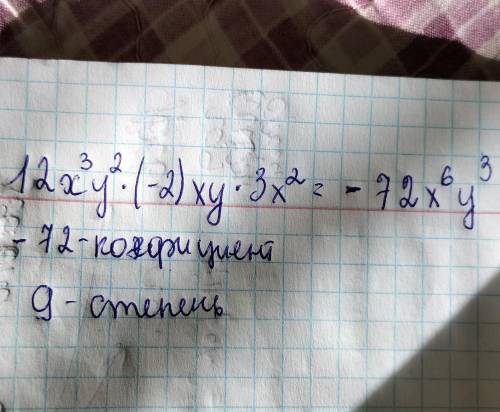 12x³y² · (-2)xy · 3x² = - 72x⁶y³
- 72 - коэфициент
9 - степень